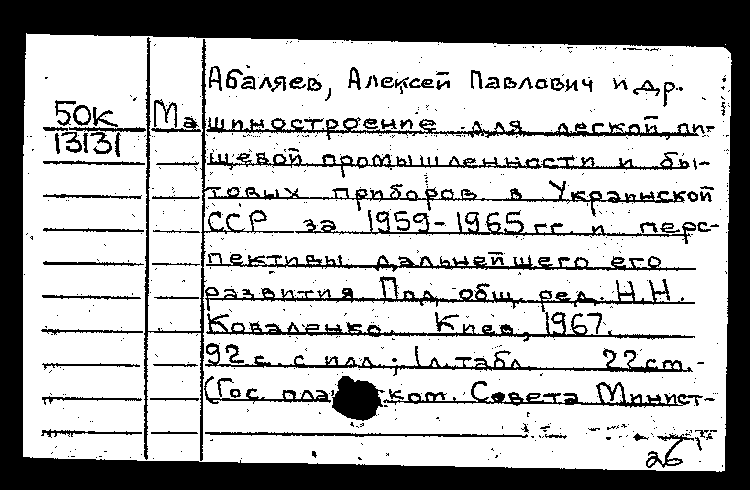 Абаляев, Алексей Павлович и др.
50к Машиностроение для легкой, пи-
13131 щевой промышленности и бы-
товых приборов в Украинской
ССР за 1959-1965 гг. и перс-
пективы дальнейшего его
развития. Под общ. ред. Н.Н.
Коваленко. Киев, 1967.
92 с. с илл.; 1 л. табл. 22 см. -
(Гос. план. ком. Совета Минист-
26